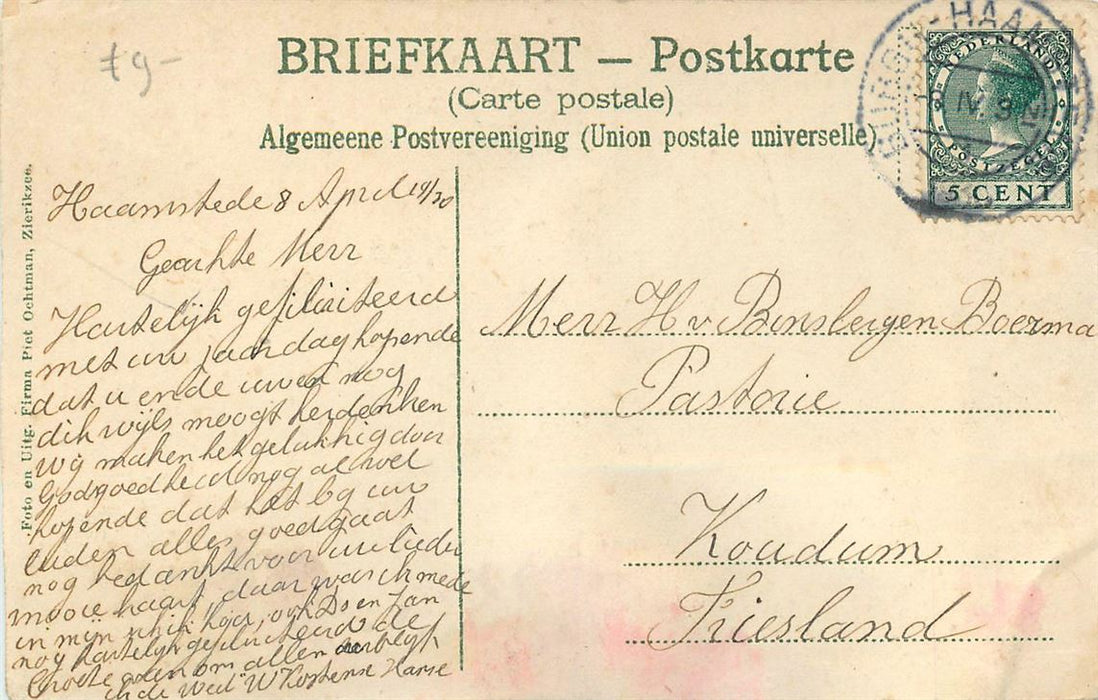 £9-
BRIEFKAART – Postkarte
(Carte postale)
Algemeene Postvereeniging (Union postale universelle)
NEDERLAND
POSTZEGEL
5 CENT
Foto en Uitg. Firma Piet Ochtman, Zierikzee.
Haamstede 8 April 19/30
Geachte Herr
Hartelijk gefiliciteerd
met uw jaardag hopende
dat u en de uwen nog
dikwijls moogt herdenken
wij maken het gelukkig door
Gods goedheid nog al wel
hopende dat het bij uw
luden alles goed gaat
nog bedankt voor uwlieder
mooie kaart, daar was ik mede
in mijn schik hoor, ook Ds en Jan
nog hartelijk gefiliciteerd de
Groete van om allen blijft
in de weel W Kostense Harse
Merr H v Binsbergen Boerma
Pastorie
Koudum
Friesland